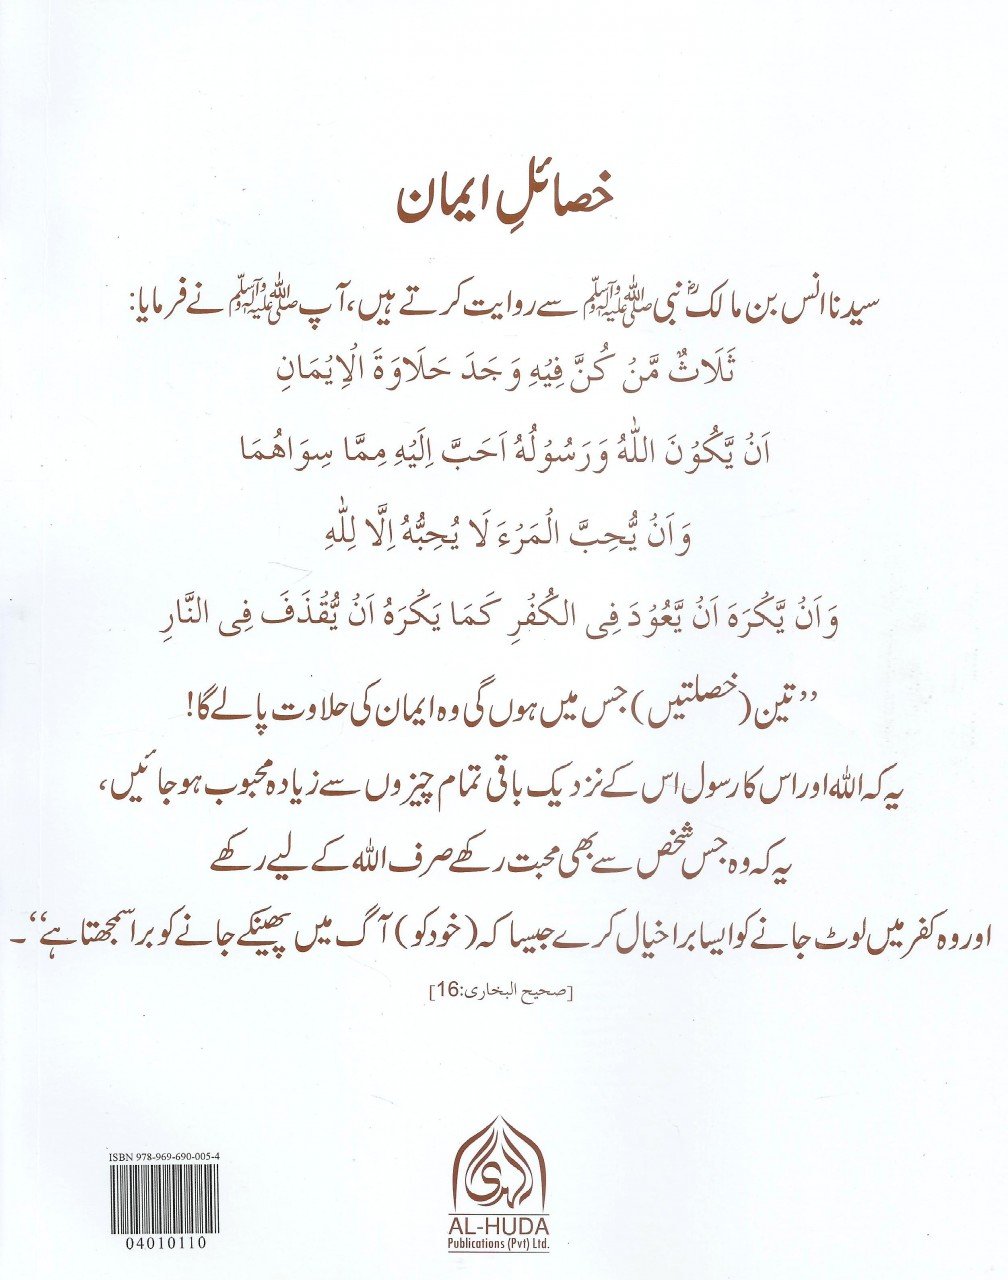 خصائلِ ایمان
سیدنا انس بن مالکؓ نبی ﷺ سے روایت کرتے ہیں، آپ ﷺ نے فرمایا:
ثَلَاثٌ مَّنْ كُنَّ فِيْهِ وَجَدَ حَلَاوَةَ الْاِيْمَانِ
اَنْ يَّكُوْنَ اللّٰهُ وَرَسُوْلُهُ اَحَبَّ اِلَيْهِ مِمَّا سِوَاهُمَا
وَاَنْ يُّحِبَّ الْمَرْءَ لَا يُحِبُّهُ اِلَّا لِلّٰهِ
وَاَنْ يَّكْرَهَ اَنْ يَّعُوْدَ فِى الْكُفْرِ كَمَا يَكْرَهُ اَنْ يُّقْذَفَ فِى النَّارِ
”تین (خصلتیں) جس میں ہوں گی وہ ایمان کی حلاوت پا لے گا!
یہ کہ اللہ اور اس کا رسول اس کے نزدیک باقی تمام چیزوں سے زیادہ محبوب ہو جائیں،
یہ کہ وہ جس شخص سے بھی محبت رکھے صرف اللہ کے لیے رکھے
اور وہ کفر میں لوٹ جانے کو ایسا برا خیال کرے جیسا کہ (خود کو) آگ میں پھینکے جانے کو برا سمجھتا ہے“۔
[صحیح البخاری:16]
ISBN 978-969-690-005-4
04010110
الهدى
AL-HUDA
Publications (Pvt) Ltd.